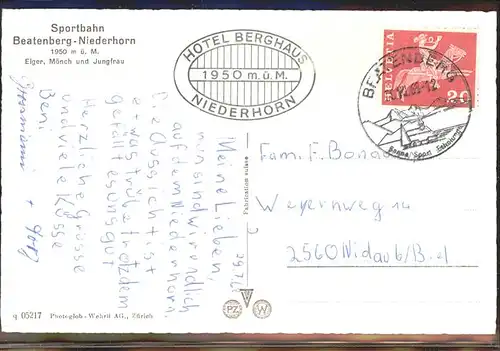 Sportbahn
Beatenberg-Niederhorn
1950 m ü. M.
Eiger, Mönch und Jungfrau
HOTEL BERGHAUS
1950 m.ü.M.
NIEDERHORN
HELVETIA
20
BEATENBERG
Meine Lieben,
nun sind wir endlich
auf dem Niederhorn.
Die Aussicht ist
etwas trüb, trotzdem
gefällt es uns gut
Herzliche Grüsse
und viele Küsse
Beni
Fam. F. Bonad
Weyernweg 14
2560 Nidau b/Biel
Fabrication suisse
PZ W
q 05217 Photoglob-Wehrli AG., Zürich